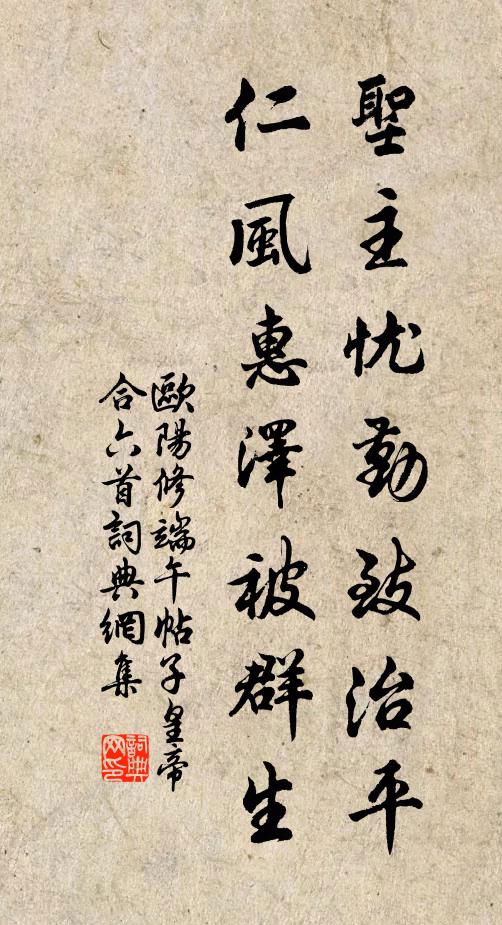 聖主忧勤致治平
仁風惠澤被群生
歐陽修端午帖子皇帝
合六首詞典網集
詞典
网印